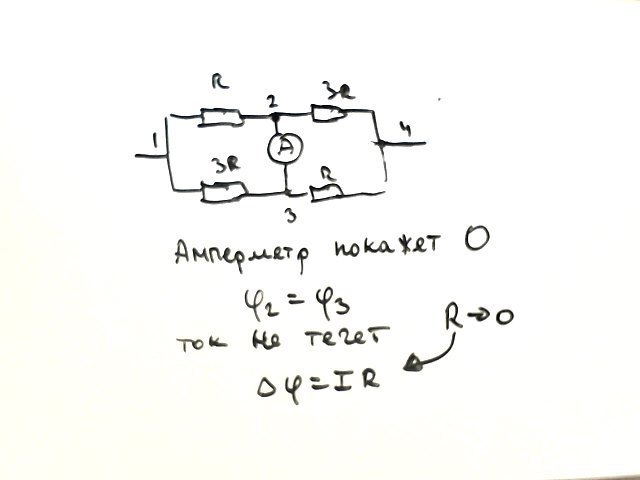 R
2
3R
1
A
4
3R
R
3
Амперметр покажет 0
φ₂ = φ₃
ток не течет
R→0
Δφ = IR